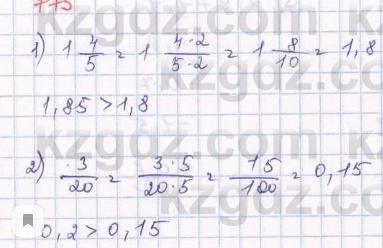 775
1) 1 4/5 = 1 4·2/5·2 = 1 8/10 = 1,8
1,85 > 1,8
2) 3/20 = 3·5/20·5 = 15/100 = 0,15
0,2 > 0,15
kzgdz.com